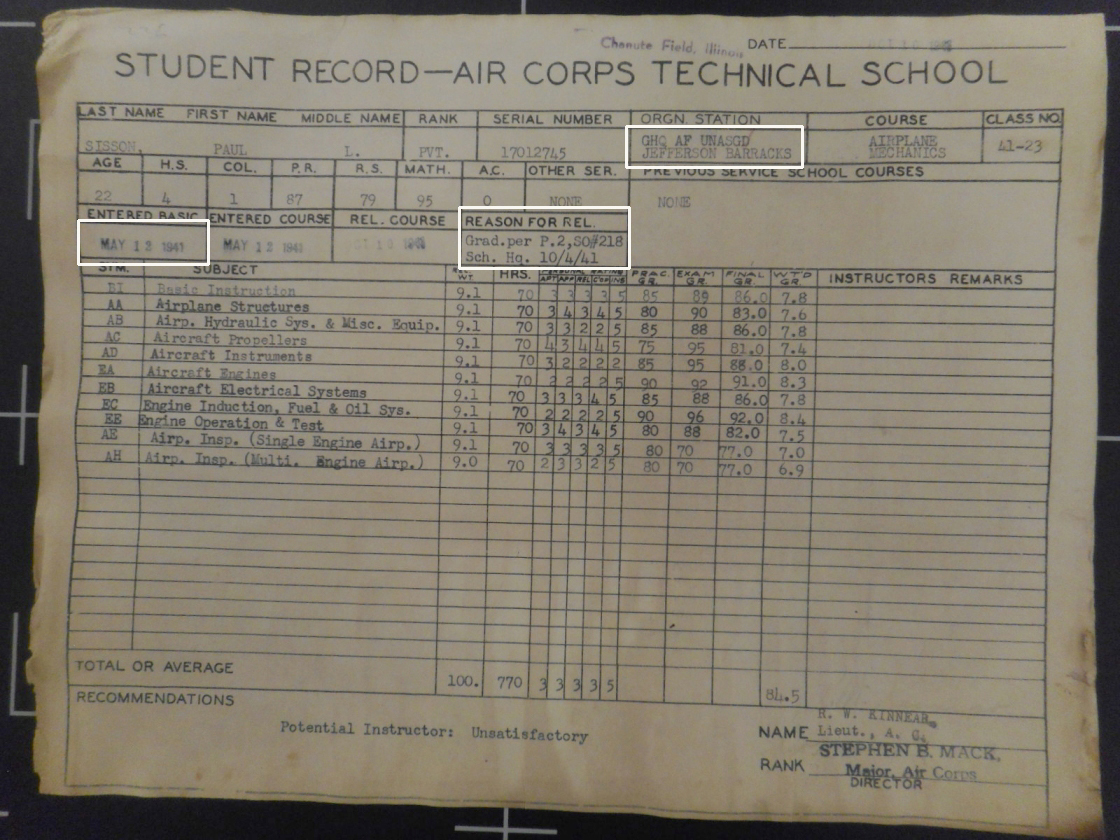 Chanute Field, Illinois DATE OCT 10
STUDENT RECORD—AIR CORPS TECHNICAL SCHOOL
LAST NAME FIRST NAME MIDDLE NAME RANK SERIAL NUMBER ORGN. STATION COURSE CLASS NO.
SISSON, PAUL L. PVT. 17012745 GHQ AF UNASGD JEFFERSON BARRACKS AIRPLANE MECHANICS 41-23
AGE H.S. COL. P.R. R.S. MATH. A.C. OTHER SER. PREVIOUS SERVICE SCHOOL COURSES
22 4 1 87 79 95 0 NONE NONE
ENTERED BASIC ENTERED COURSE REL. COURSE REASON FOR REL.
MAY 12 1941 MAY 12 1941 Grad.per P.2,SO#218
Sch. Hq. 10/4/41
SYM. SUBJECT WT HRS. PERSONAL RATING APT APP REL COP INS PRAC. GR. EXAM GR. FINAL GR. WT'D GR. INSTRUCTORS REMARKS
BI Basic Instruction 9.1 70 3 3 3 3 5 85 89 86.0 7.8
AA Airplane Structures 9.1 70 3 4 3 4 5 80 90 83.0 7.6
AB Airp. Hydraulic Sys. & Misc. Equip. 9.1 70 3 3 2 2 5 85 88 86.0 7.8
AC Aircraft Propellers 9.1 70 4 3 4 4 5 75 95 81.0 7.4
AD Aircraft Instruments 9.1 70 3 2 2 2 2 85 95 88.0 8.0
EA Aircraft Engines 9.1 70 2 2 2 2 5 90 92 91.0 8.3
EB Aircraft Electrical Systems 9.1 70 3 3 3 4 5 85 88 86.0 7.8
EC Engine Induction, Fuel & Oil Sys. 9.1 70 2 2 2 2 5 90 96 92.0 8.4
EE Engine Operation & Test 9.1 70 3 4 3 4 5 80 88 82.0 7.5
AE Airp. Insp. (Single Engine Airp.) 9.1 70 3 3 3 3 5 80 70 77.0 7.0
AH Airp. Insp. (Multi. Engine Airp.) 9.0 70 2 3 3 2 5 80 70 77.0 6.9
TOTAL OR AVERAGE 100. 770 3 3 3 3 5 84.5
RECOMMENDATIONS
Potential Instructor: Unsatisfactory
R. W. KINNEAR,
NAME Lieut., A. C.
STEPHEN B. MACK,
RANK Major, Air Corps
DIRECTOR